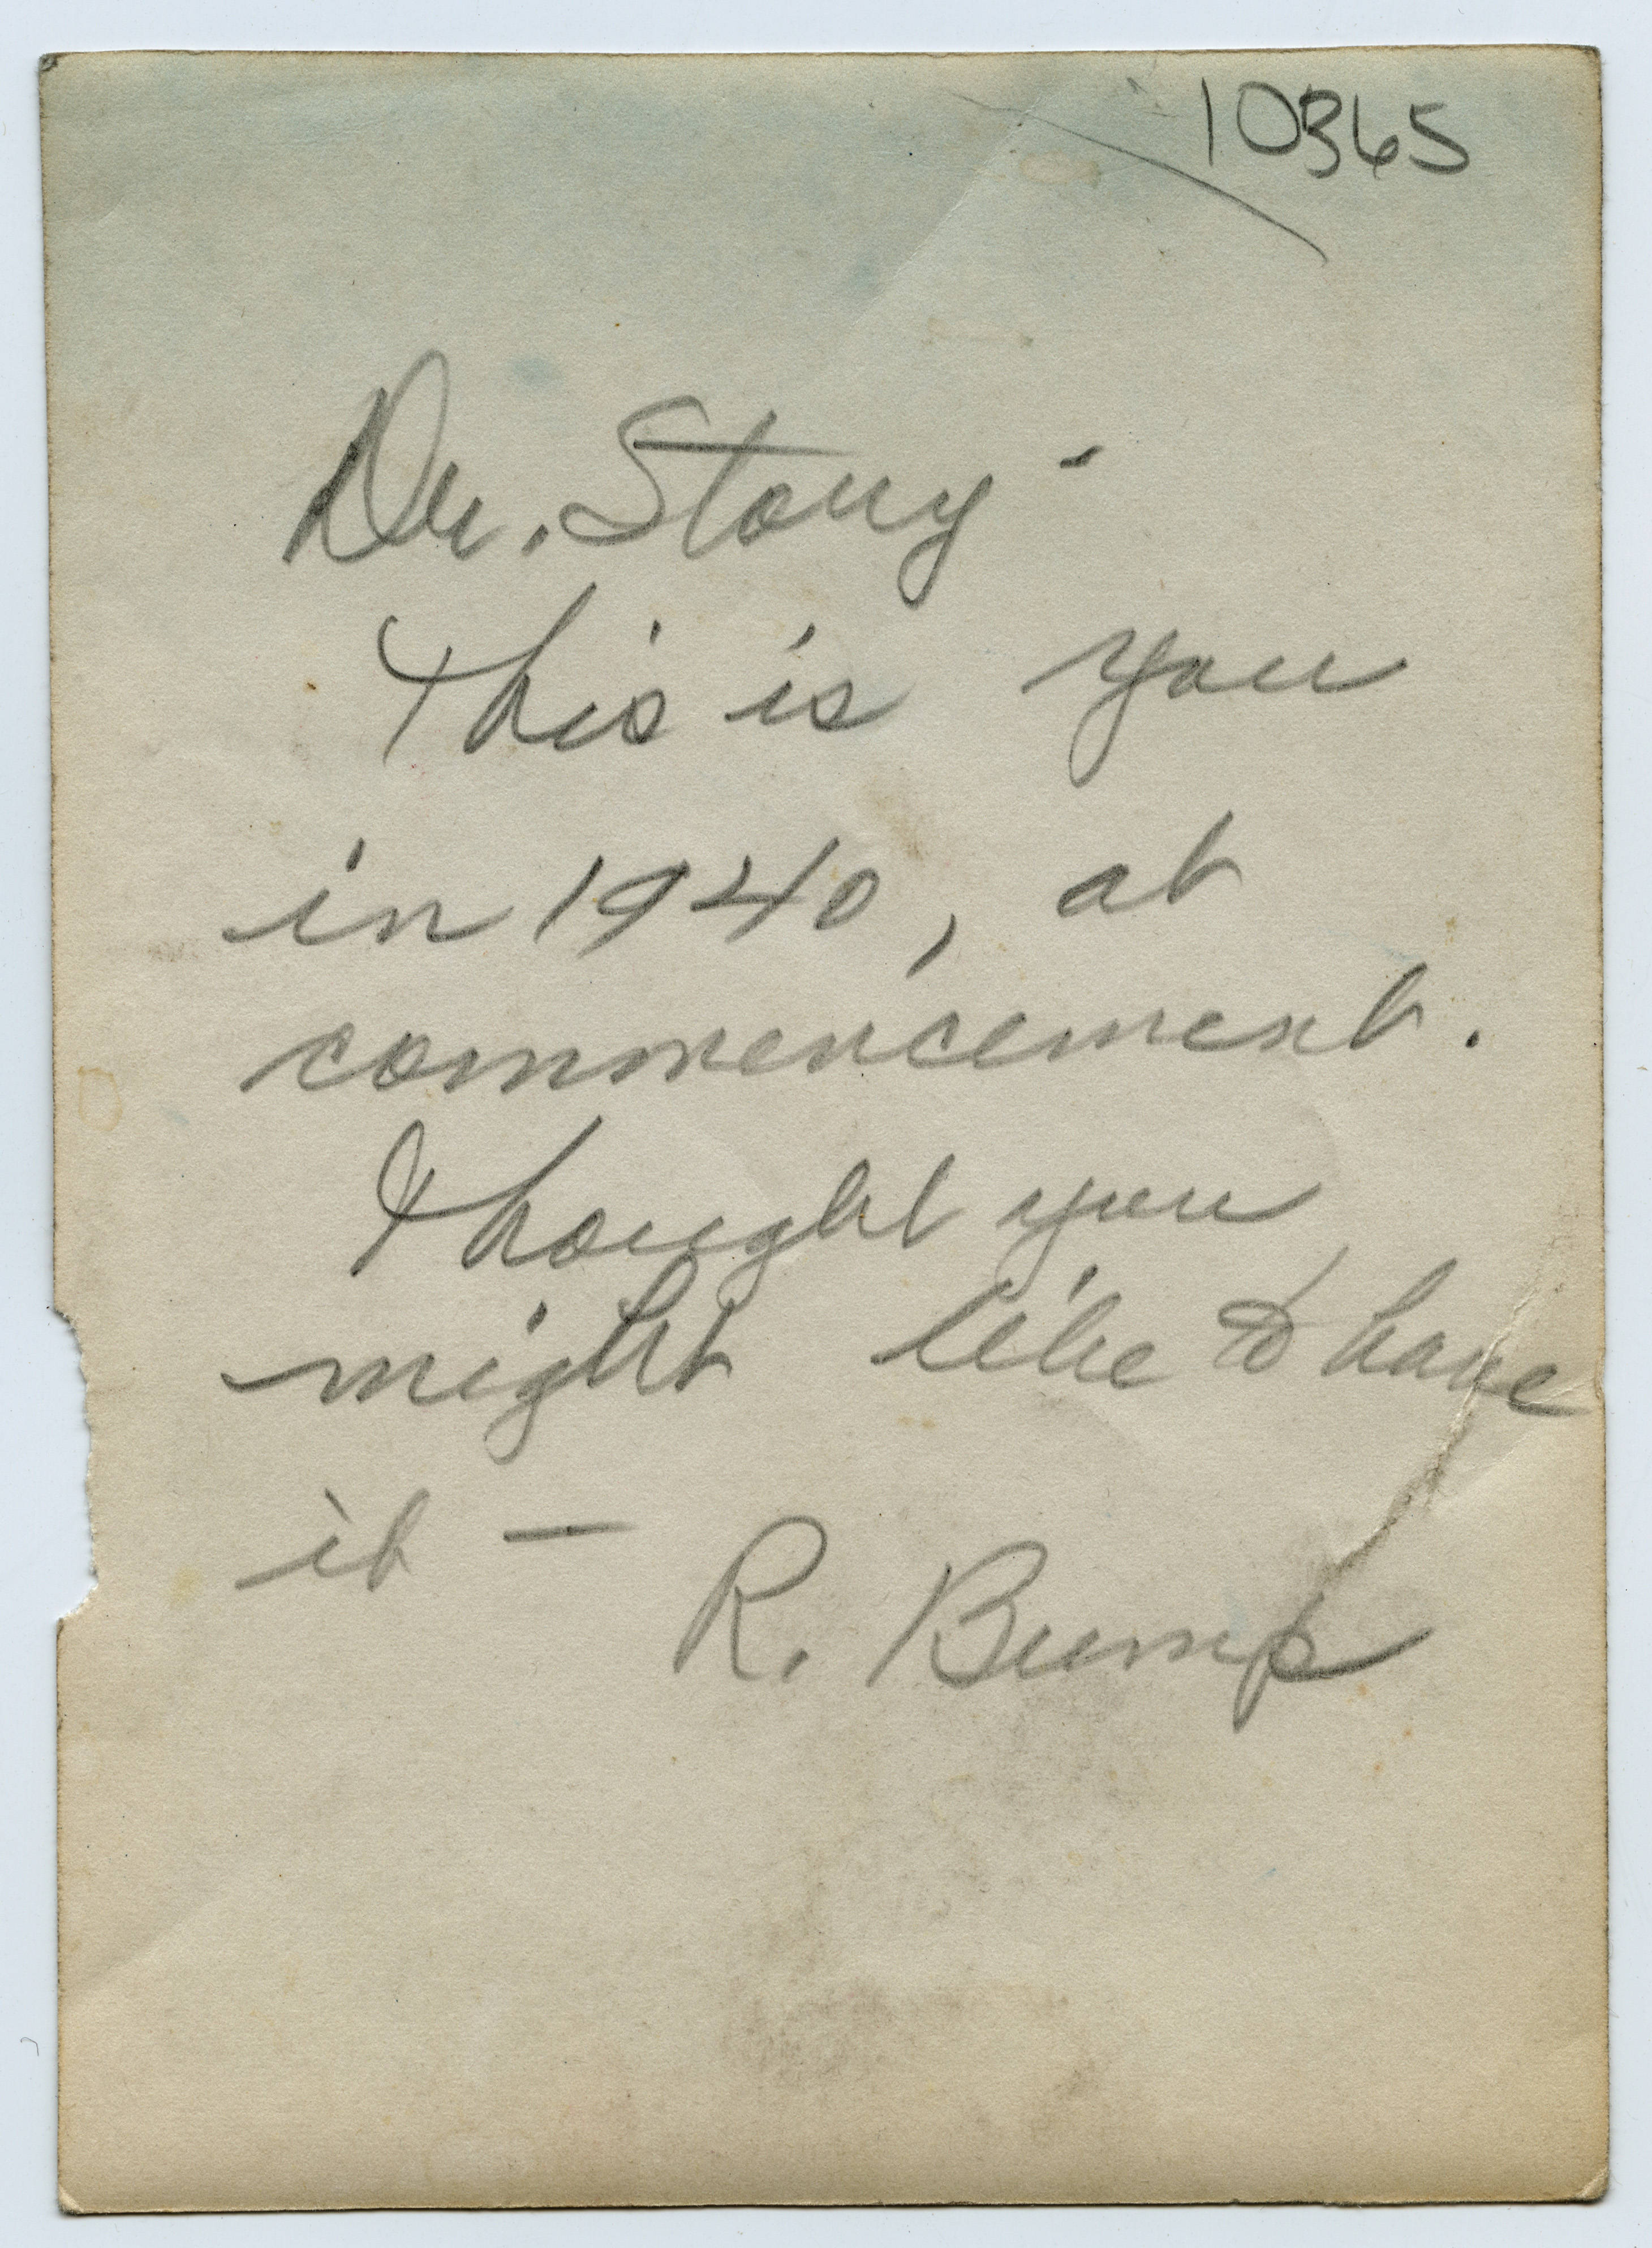 10365
Dr. Story -
This is you
in 1940, at
commencement.
Thought you
might like to have
it —
R. Bump